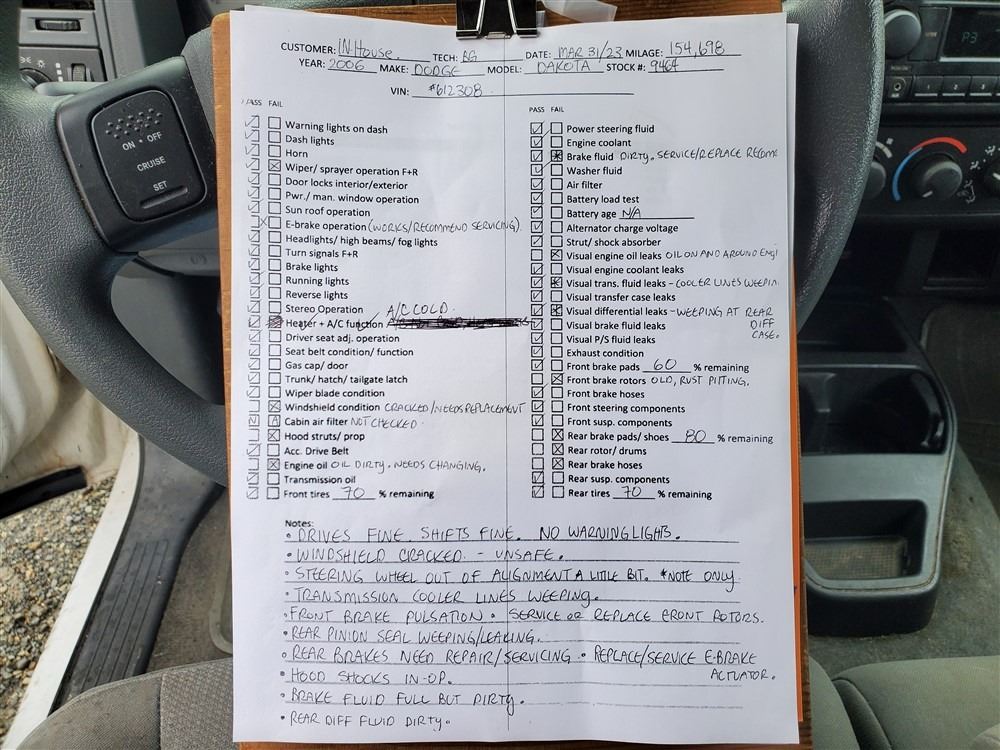 CUSTOMER: IN-House. TECH: BG DATE: MAR 31/23 MILAGE: 154,698
YEAR: 2006 MAKE: DODGE MODEL: DAKOTA STOCK #: 9464
VIN: #612308
PASS FAIL
Warning lights on dash
Dash lights
Horn
Wiper/ sprayer operation F+R
Door locks interior/exterior
Pwr./ man. window operation
Sun roof operation
E-brake operation (WORKS/RECOMMEND SERVICING)
Headlights/ high beams/ fog lights
Turn signals F+R
Brake lights
Running lights
Reverse lights
Stereo Operation A/C COLD.
Heater + A/C function
Driver seat adj. operation
Seat belt condition/ function
Gas cap/ door
Trunk/ hatch/ tailgate latch
Wiper blade condition
Windshield condition CRACKED/NEEDS REPLACEMENT
Cabin air filter NOT CHECKED.
Hood struts/ prop
Acc. Drive Belt
Engine oil OIL DIRTY. NEEDS CHANGING.
Transmission oil
Front tires 70 % remaining
PASS FAIL
Power steering fluid
Engine coolant
Brake fluid DIRTY. SERVICE/REPLACE RECOMM
Washer fluid
Air filter
Battery load test
Battery age N/A
Alternator charge voltage
Strut/ shock absorber
Visual engine oil leaks OIL ON AND AROUND ENGI
Visual engine coolant leaks
Visual trans. fluid leaks - COOLER LINES WEEPIN
Visual transfer case leaks
Visual differential leaks - WEEPING AT REAR
Visual brake fluid leaks DIFF
Visual P/S fluid leaks CASE.
Exhaust condition
Front brake pads 60 % remaining
Front brake rotors OLD, RUST PITTING.
Front brake hoses
Front steering components
Front susp. components
Rear brake pads/ shoes 80 % remaining
Rear rotor/ drums
Rear brake hoses
Rear susp. components
Rear tires 70 % remaining
Notes:
• DRIVES FINE. SHIFTS FINE. NO WARNING LIGHTS.
• WINDSHIELD CRACKED. - UNSAFE.
• STEERING WHEEL OUT OF ALIGNMENT A LITTLE BIT. *NOTE ONLY.
• TRANSMISSION COOLER LINES WEEPING.
• FRONT BRAKE PULSATION. • SERVICE OR REPLACE FRONT ROTORS.
• REAR PINION SEAL WEEPING/LEAKING.
• REAR BRAKES NEED REPAIR/SERVICING. • REPLACE/SERVICE E-BRAKE
• HOOD SHOCKS IN-OP. ACTUATOR.
• BRAKE FLUID FULL BUT DIRTY.
• REAR DIFF FLUID DIRTY.
ON • OFF
CRUISE
SET
P3